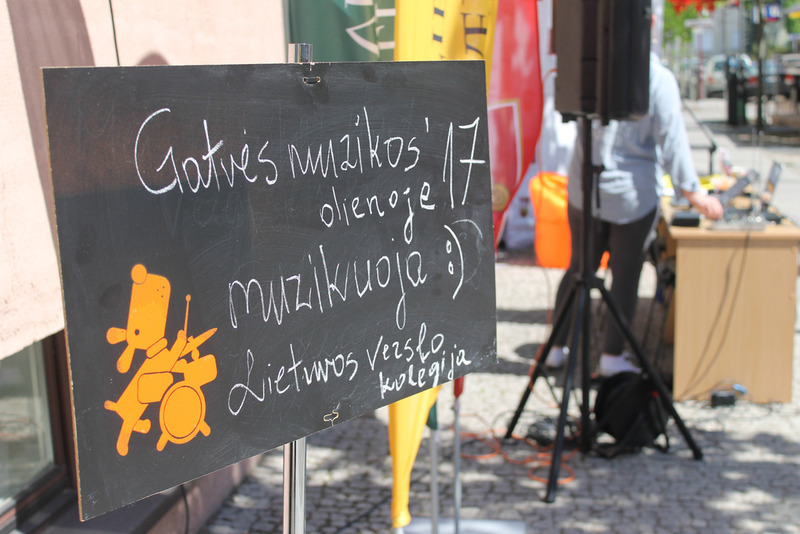 Gatvės muzikos' 17
dienoje
muzikuoja :)
Lietuvos verslo
kolegija